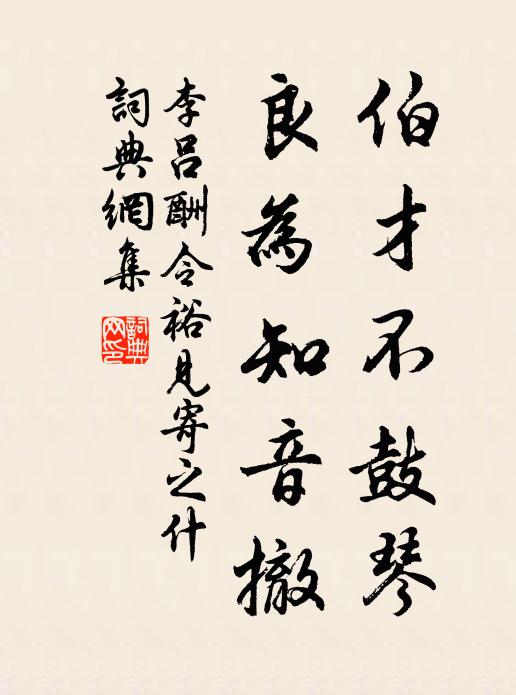 伯才不鼓琴
良為知音撤
李呂酬令裕見寄之什
詞典網集
詞典
网印